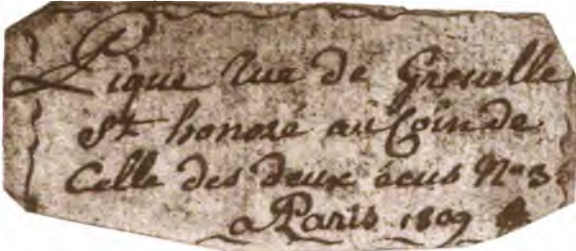 Pique rue de Grenelle
St honoré au Coin de
Celle des deux écus No 3
a Paris 1809